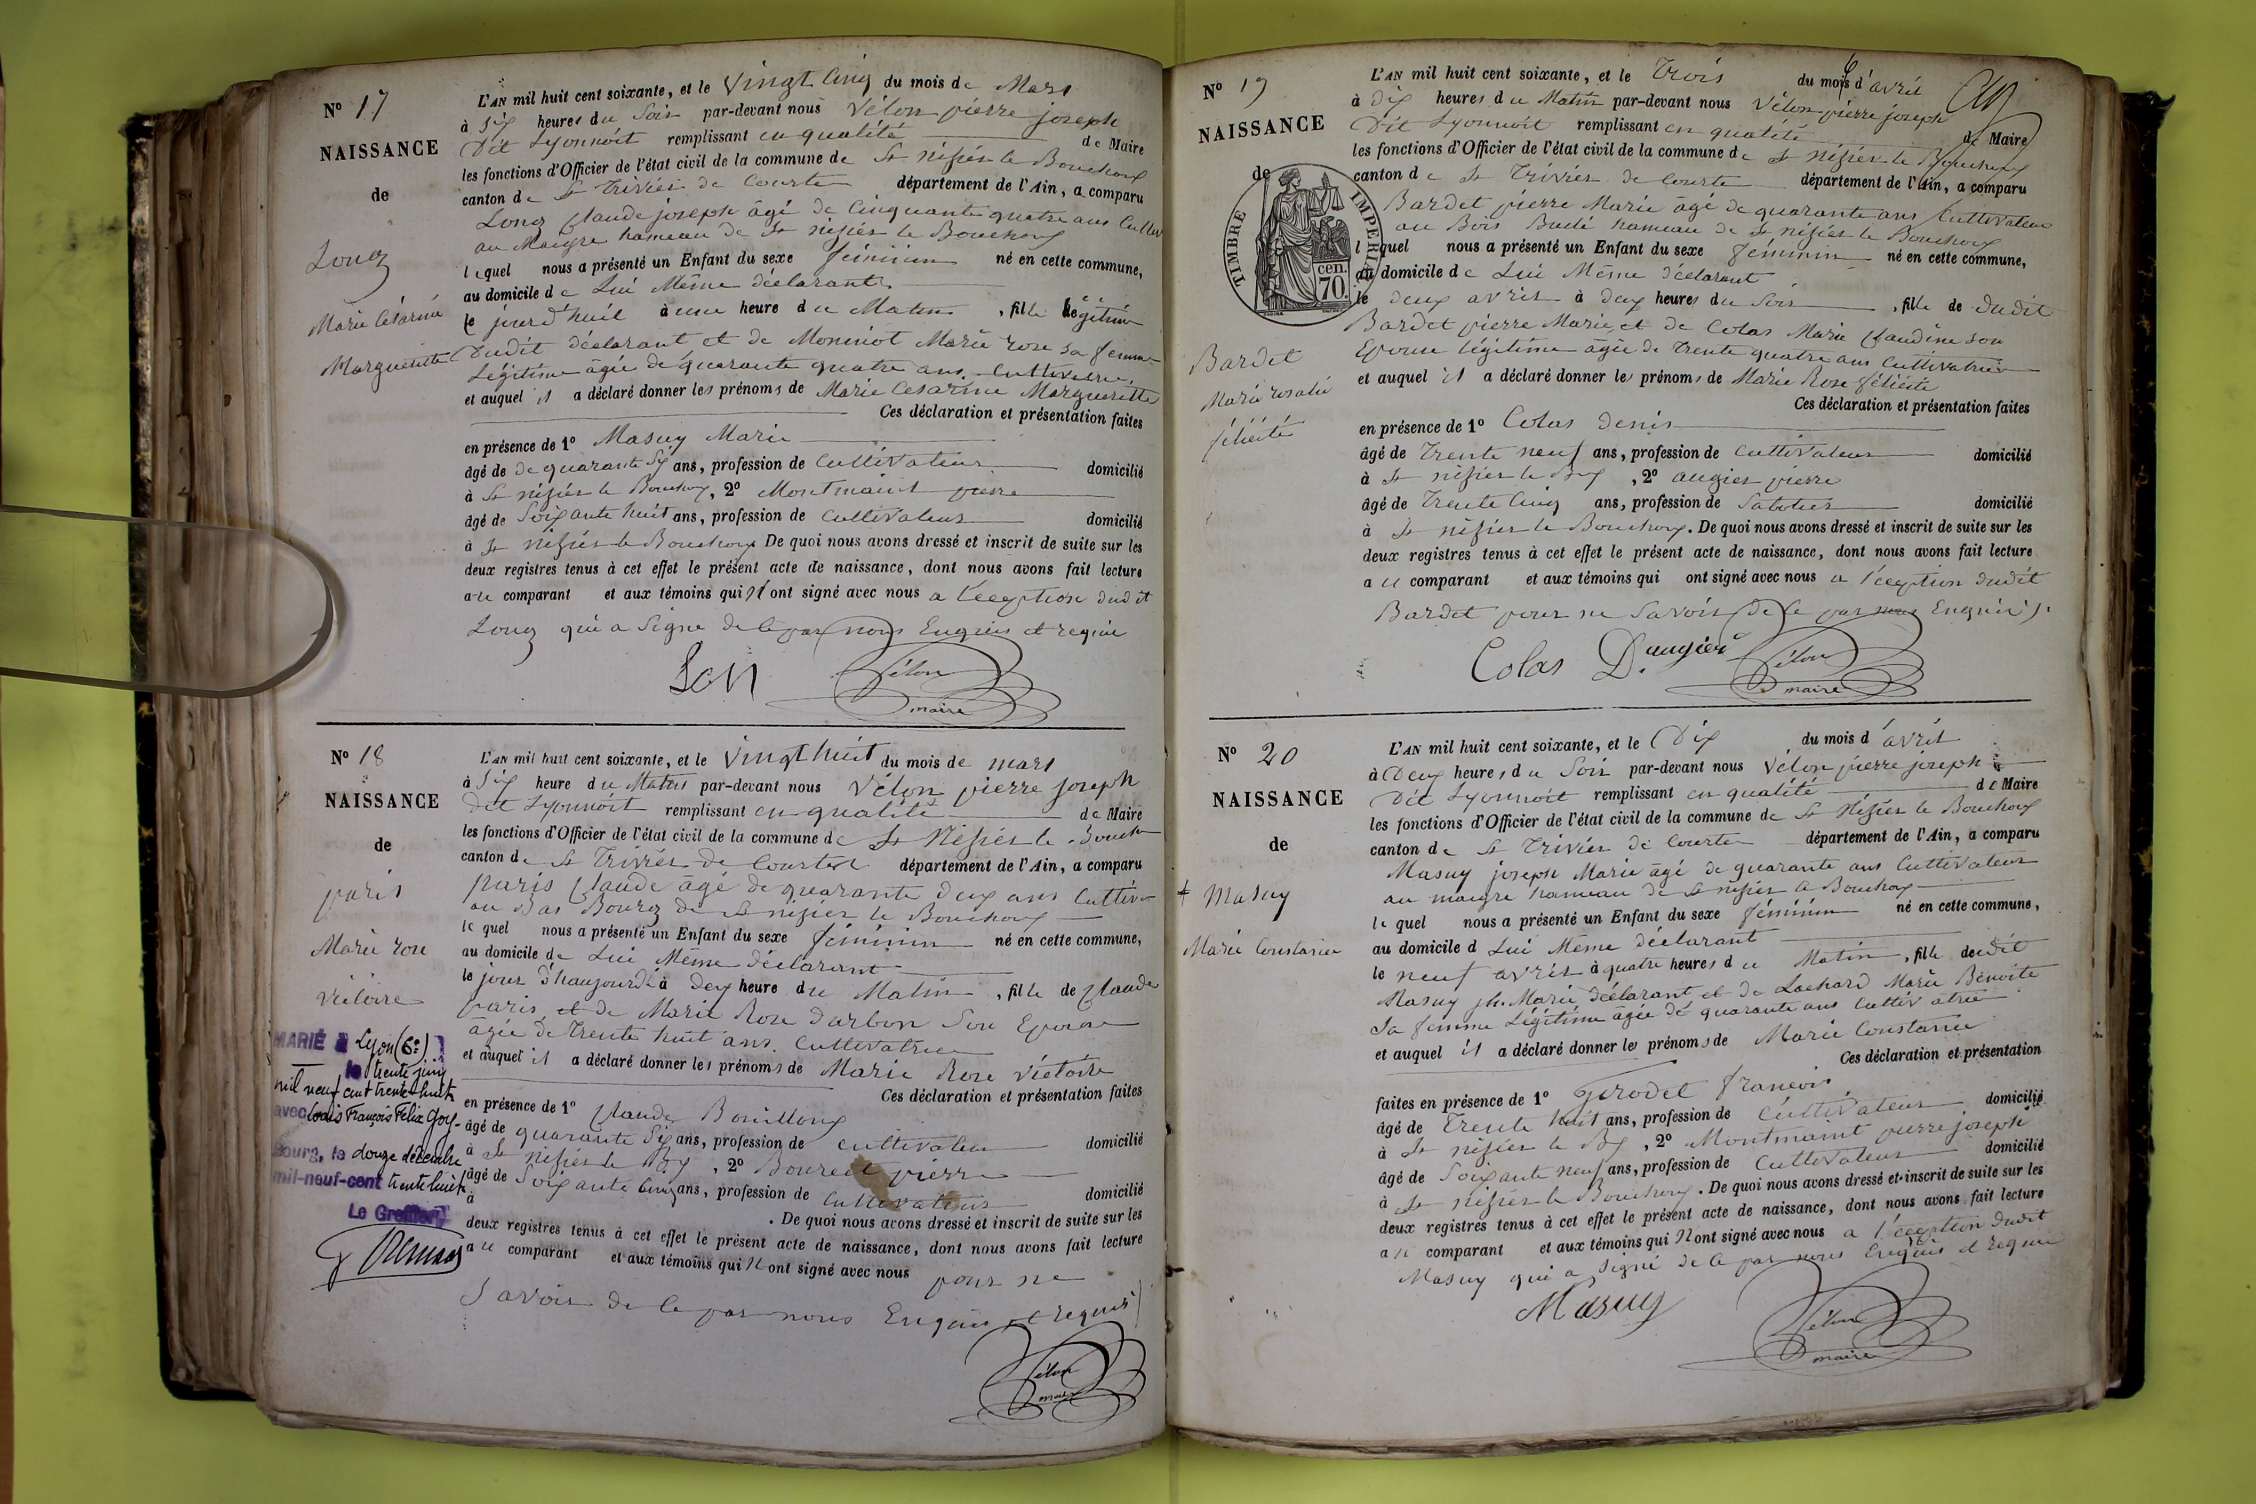 N° 17
NAISSANCE
de
Long
Marie Césarine
Marguerite
L'AN mil huit cent soixante, et le Vingt Cinq du mois de Mars
à Six heures du Soir par-devant nous Vélon pierre joseph
Dit Lyonnoit remplissant en qualité de Maire
les fonctions d'Officier de l'état civil de la commune de St nizier le Bouchoux
canton de St Trivier de Courtes département de l'Ain, a comparu
Long Claude joseph âgé de Cinquante quatre ans Cultiv
au Maigre hameau de St nizier le Bouchoux
lequel nous a présenté un Enfant du sexe féminin né en cette commune,
au domicile de Lui Même déclarant
le jourd'huil à une heure du Matin, fille légitime
Dudit déclarant et de Monniot Marie rose sa femme
Légitime âgée de quarante quatre ans Cultivatrice
et auquel il a déclaré donner les prénoms de Marie Césarine Marguerite
Ces déclaration et présentation faites
en présence de 1° Masuy Marie
âgé de de quarante Six ans, profession de Cultivateur domicilié
à St nizier le Bouchoux, 2° Montmaint pierre
âgé de Soixante huit ans, profession de Cultivateur domicilié
à St nizier le Bouchoux De quoi nous avons dressé et inscrit de suite sur les
deux registres tenus à cet effet le présent acte de naissance, dont nous avons fait lecture
au comparant et aux témoins qui N'ont signé avec nous a l'éception dudit
Long qui a Signé de ce par nous Enquis et requis
Lon Vélon
maire
N° 18
NAISSANCE
de
paris
Marie rose
victoire
MARIÉ à Lyon (6e)
le trente juin
mil neuf cent trente-huit
avec Louis François Félix Goy-
Bourg, le douze décembre
mil-neuf-cent trente huit
Le Greffier
L'AN mil huit cent soixante, et le Vingt huit du mois de mars
à Six heure du Matin par-devant nous Vélon pierre joseph
Dit Lyonnoit remplissant en qualité de Maire
les fonctions d'Officier de l'état civil de la commune de St Nizier le Bouch
canton de St Trivier de Courtes département de l'Ain, a comparu
paris Claude âgé de quarante deux ans Cultiv
au Bas Bourg de St nizier le Bouchoux
lequel nous a présenté un Enfant du sexe féminin né en cette commune,
au domicile de Lui Même déclarant
le jour d'haujourd à deux heure du Matin, fille de Claude
paris et de Marie Rose darbon Son Epouse
âgée de trente huit ans Cultivatrice
et auquel il a déclaré donner les prénoms de Marie Rose victoire
Ces déclaration et présentation faites
en présence de 1° Claude Bouilloux
âgé de quarante Six ans, profession de cultivateur domicilié
à St nizier le Bx, 2° pierre
âgé de Soixante Cinq ans, profession de Cultivateur domicilié
à . De quoi nous avons dressé et inscrit de suite sur les
deux registres tenus à cet effet le présent acte de naissance, dont nous avons fait lecture
au comparant et aux témoins qui N'ont signé avec nous pour ne
Savoir de ce par nous Enquis et requis
Vélon
maire
N° 19
NAISSANCE
de
TIMBRE IMPERIAL
70 cen.
Bardet
Marie rosalie
félicité
L'AN mil huit cent soixante, et le Trois du mois d'avril
à dix heures du Matin par-devant nous Vélon pierre joseph
Dit Lyonnoit remplissant en qualité de Maire
les fonctions d'Officier de l'état civil de la commune de St nizier le Bouchoux
canton de St Trivier de Courtes département de l'Ain, a comparu
Bardet pierre Marie âgé de quarante ans Cultivateur
au Bois hameau de St nizier le Bouchoux
lequel nous a présenté un Enfant du sexe féminin né en cette commune,
au domicile de Lui Même déclarant
le deux avril à deux heures du Soir, fille de dudit
Bardet pierre Marie et de Colas Marie Claudine son
Epouse légitime âgée de trente quatre ans Cultivatrice
et auquel il a déclaré donner les prénoms de Marie Rose félicité
Ces déclaration et présentation faites
en présence de 1° Colas denis
âgé de Trente neuf ans, profession de Cultivateur domicilié
à St nizier le Bx, 2° augier pierre
âgé de Trente Cinq ans, profession de Sabotier domicilié
à St nizier le Bouchoux. De quoi nous avons dressé et inscrit de suite sur les
deux registres tenus à cet effet le présent acte de naissance, dont nous avons fait lecture
au comparant et aux témoins qui ont signé avec nous a l'éception dudit
Bardet pour ne Savoir de ce par nous Enquis
Colas D. augier Vélon
maire
N° 20
NAISSANCE
de
Masuy
Marie Constance
L'AN mil huit cent soixante, et le Dix du mois d'avril
à Deux heures du Soir par-devant nous Vélon pierre joseph
Dit Lyonnoit remplissant en qualité de Maire
les fonctions d'Officier de l'état civil de la commune de St Nizier le Bouchoux
canton de St Trivier de Courtes département de l'Ain, a comparu
Masuy joseph Marie âgé de quarante ans Cultivateur
au maigre hameau de St nizier le Bouchoux
lequel nous a présenté un Enfant du sexe féminin né en cette commune,
au domicile d Lui Même déclarant
le neuf avril à quatre heures du Matin, fille dudit
Masuy jh. Marie déclarant et de Lachard Marie Benoite
Sa femme Légitime âgée de quarante ans Cultivatrice
et auquel il a déclaré donner les prénoms de Marie Constance
Ces déclaration et présentation
faites en présence de 1° françois
âgé de Trente huit ans, profession de Cultivateur domicilié
à St nizier le Bx, 2° Montmaint pierre joseph
âgé de Soixante neuf ans, profession de Cultivateur domicilié
à St nizier le Bouchoux. De quoi nous avons dressé et inscrit de suite sur les
deux registres tenus à cet effet le présent acte de naissance, dont nous avons fait lecture
au comparant et aux témoins qui N'ont signé avec nous a l'éception dudit
Masuy qui a Signé de ce par nous Enquis et requis
Masuy Vélon
maire